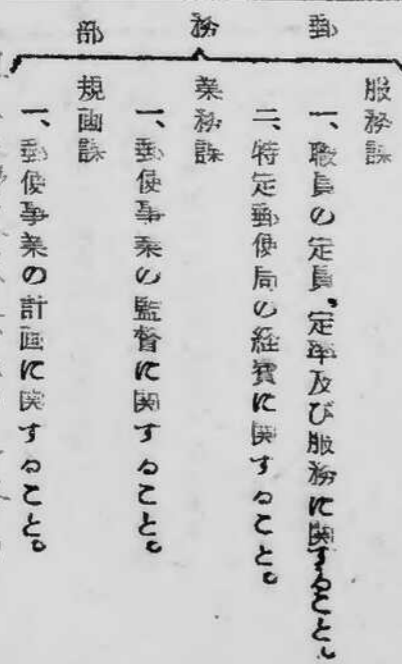 郵務部
服務課
一、職員の定員、定率及び服務に関すること。
二、特定郵便局の経費に関すること。
業務課
一、郵便事業の監督に関すること。
規画課
一、郵便事業の計画に関すること。